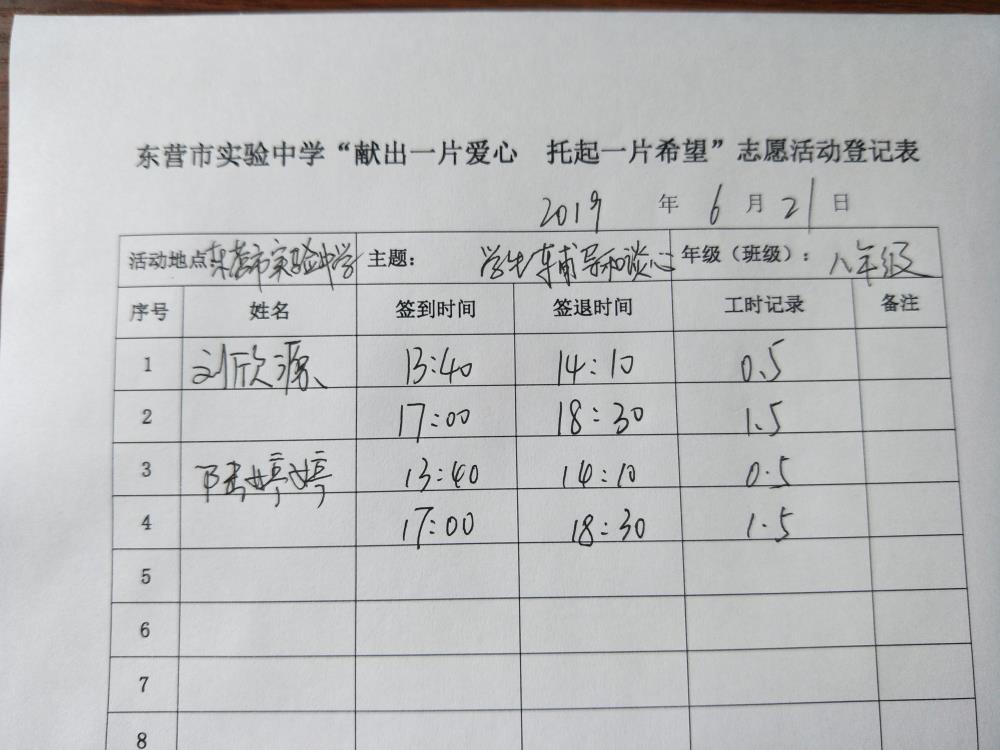 东营市实验中学“献出一片爱心 托起一片希望”志愿活动登记表
2019 年 6 月 21 日
活动地点 东营市实验中学 主题： 学生辅导和谈心 年级（班级）： 八年级
序号 姓名 签到时间 签退时间 工时记录 备注
1 刘欣源 13:40 14:10 0.5
2 17:00 18:30 1.5
3 婷婷 13:40 14:10 0.5
4 17:00 18:30 1.5
5
6
7
8